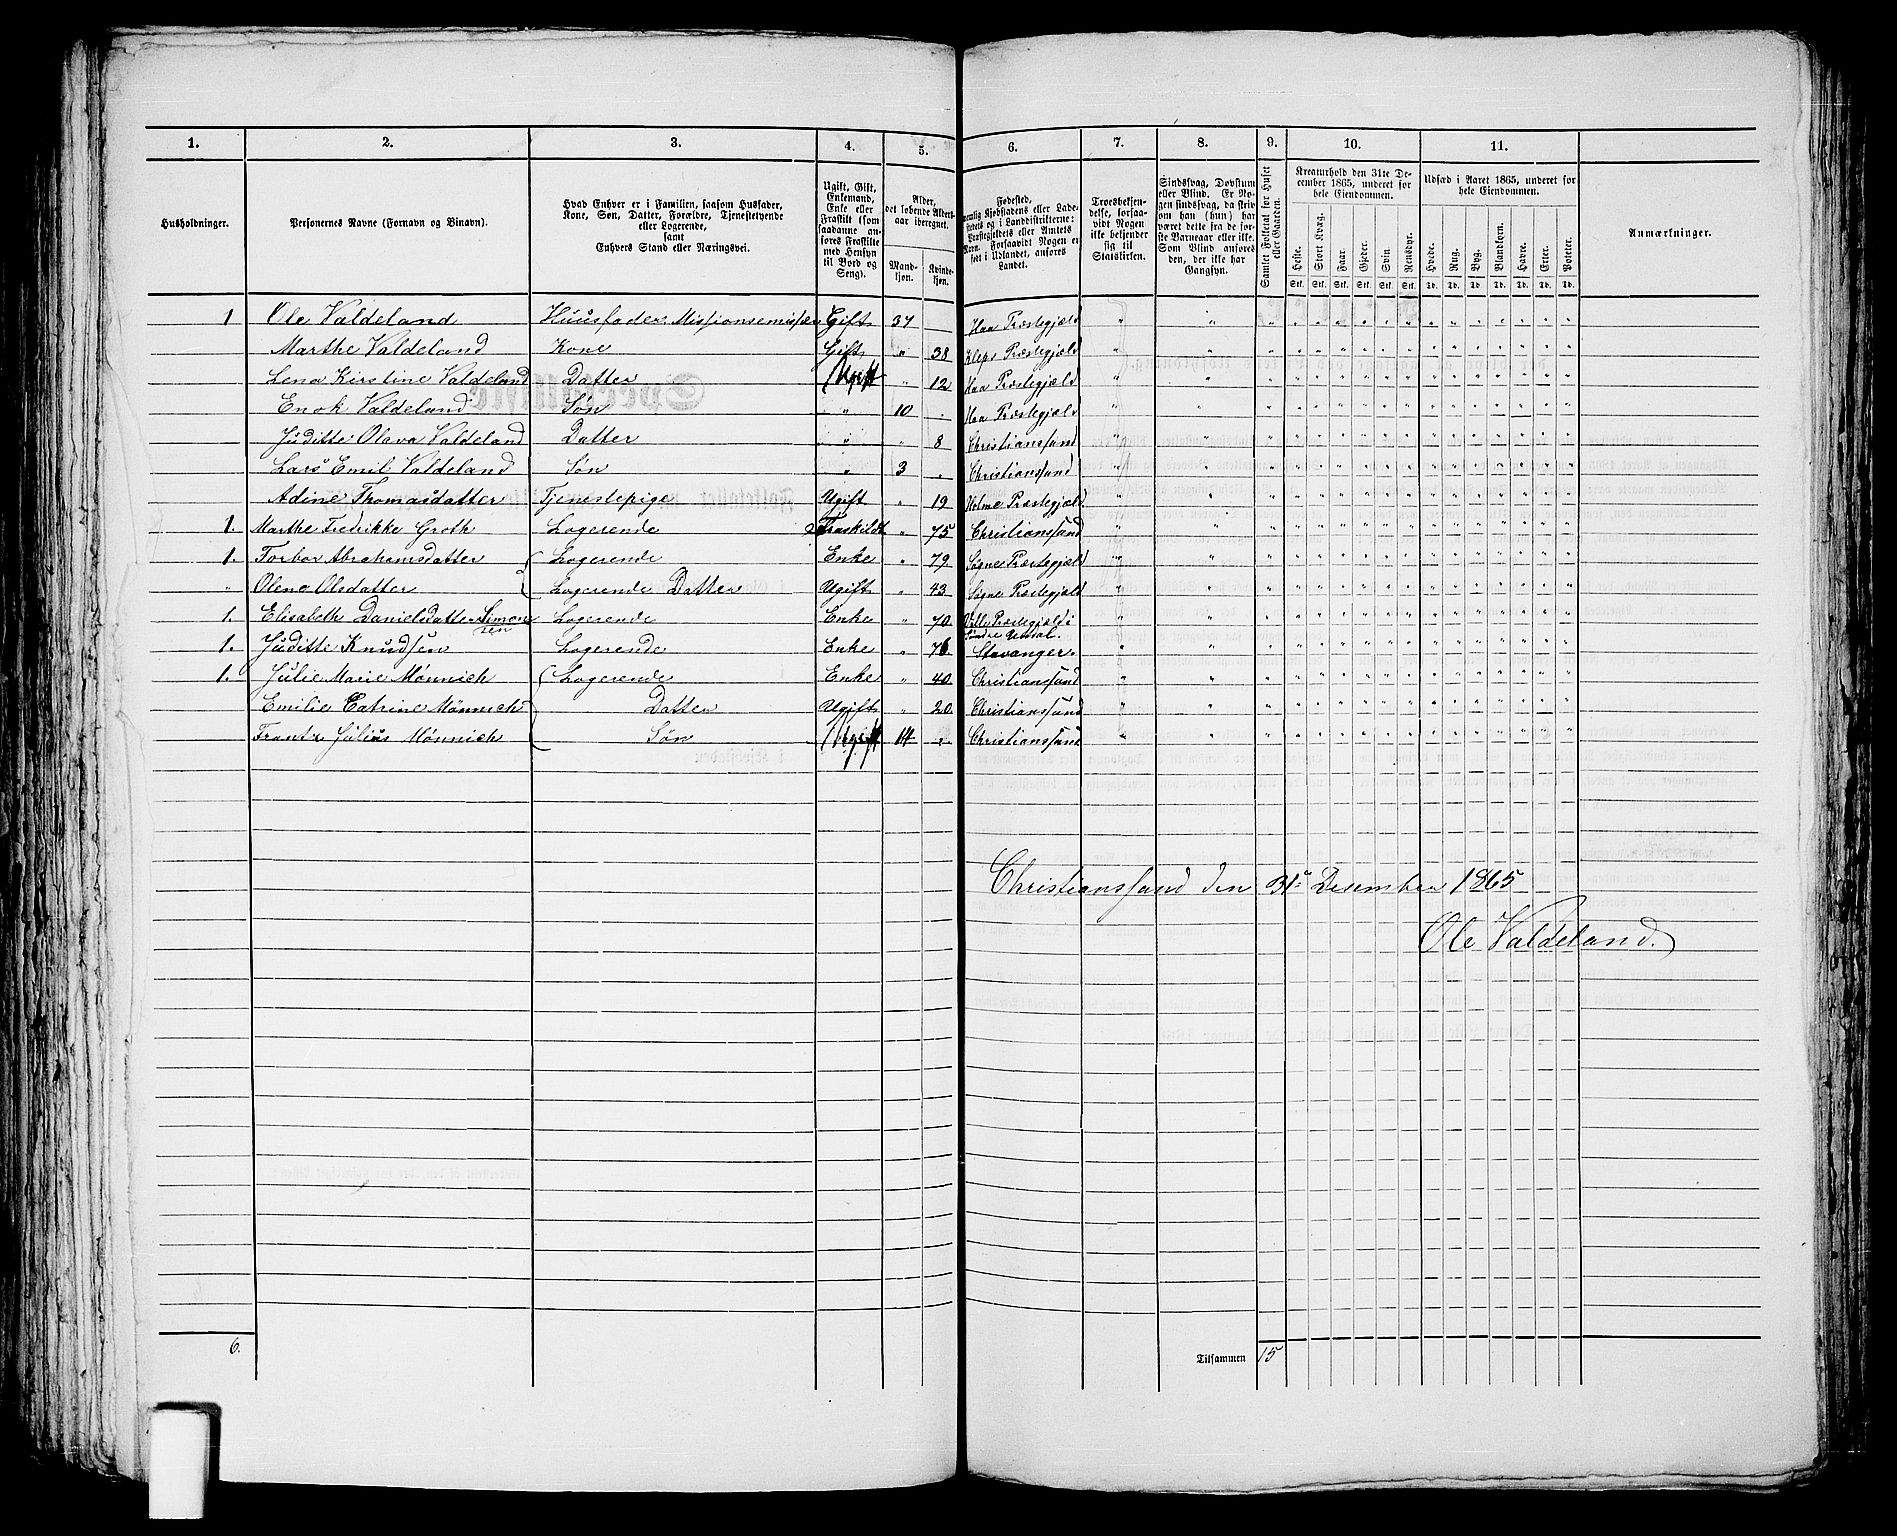 1. 2. 3. 4. 5. 6. 7. 8. 9. 10. 11.
Husholdninger.
Personernes Navne (Fornavn og Binavn).
Hvad Enhver er i Familien, saasom Husfader,
Kone, Søn, Datter, Forældre, Tjenestetyende
eller Logerende,
samt
Enhvers Stand eller Næringsvei.
Ugift, Gift,
Enkemand,
Enke eller
Fraskilt (som
saadanne an-
føres Fraskilte
med Hensyn
til Bord og
Seng).
Alder,
det løbende Alders-
aar iberegnet.
Mand-
kjøn.
Kvinde-
kjøn.
Fødested,
nemlig Kjøbstadens eller Lade-
stedets og i Landdistrikterne:
Præstegjeldets eller Amtets
Navn. Forsaavidt Nogen er
født i Udlandet, anføres
Landet.
Troesbekjen-
delse, forsaa-
vidt Nogen
ikke bekjender
sig til
Statskirken.
Sindssvag, Døvstum
eller Blind. Er No-
gen sindssvag, da skriv
om han (hun) har
været dette fra de før-
ste Barneaar eller ikke.
Som Blind anføres
den, der ikke har
Gangsyn.
Samlet Folketal for Huset
eller Gaarden.
Kreaturhold den 31te De-
cember 1865, underet for
hele Eiendommen.
Heste. Stort Kvæg. Faar. Gjeder. Svin. Rensdyr.
Stk. Stk. Stk. Stk. Stk. Stk.
Udsæd i Aaret 1865, underet for
hele Eiendommen.
Hvede. Rug. Byg. Blandkorn. Havre. Erter. Poteter.
Td. Td. Td. Td. Td. Td. Td.
Anmærkninger.
1 Ole Valdeland Huusfader Missionsemissær Gift 37 Haa Præstegjæld
Marthe Valdeland Kone Gift " 38 Klep Præstegjæld
Lena Kirstine Valdeland Datter Ugift " 12 Haa Præstegjæld
Enok Valdeland Søn " 10 " Haa Præstegjæld
Juditte Olava Valdeland Datter " " 8 Christianssand
Lars Emil Valdeland Søn " 3 " Christianssand
Adine Thomasdatter Tjenestepige Ugift " 19 Holme Præstegjæld
1. Marthe Fredrikke Groth Logerende Fraskildt " 75 Christianssand
1. Torbor Abrahamsdatter Logerende Enke " 79 Søgne Præstegjæld
" Olene Olsdatter Logerende Datter Ugift " 43 Søgne Præstegjæld
1. Elisabeth Danielsdatter Simonsen Logerende Enke " 70 Valle Præstegjæld i
Søndre Undal.
1. Juditte Knudsen Logerende Enke " 76 Stavanger.
1. Julie Marie Mönnich Logerende Enke " 40 Christianssand
Emilie Catrine Mönnich Datter Ugift " 20 Christianssand
Frantz Julius Mönnich Søn Ugift 14 " Christianssand
Christianssand den 31. Desember 1865
Ole Valdeland.
6.
Tilsammen 15